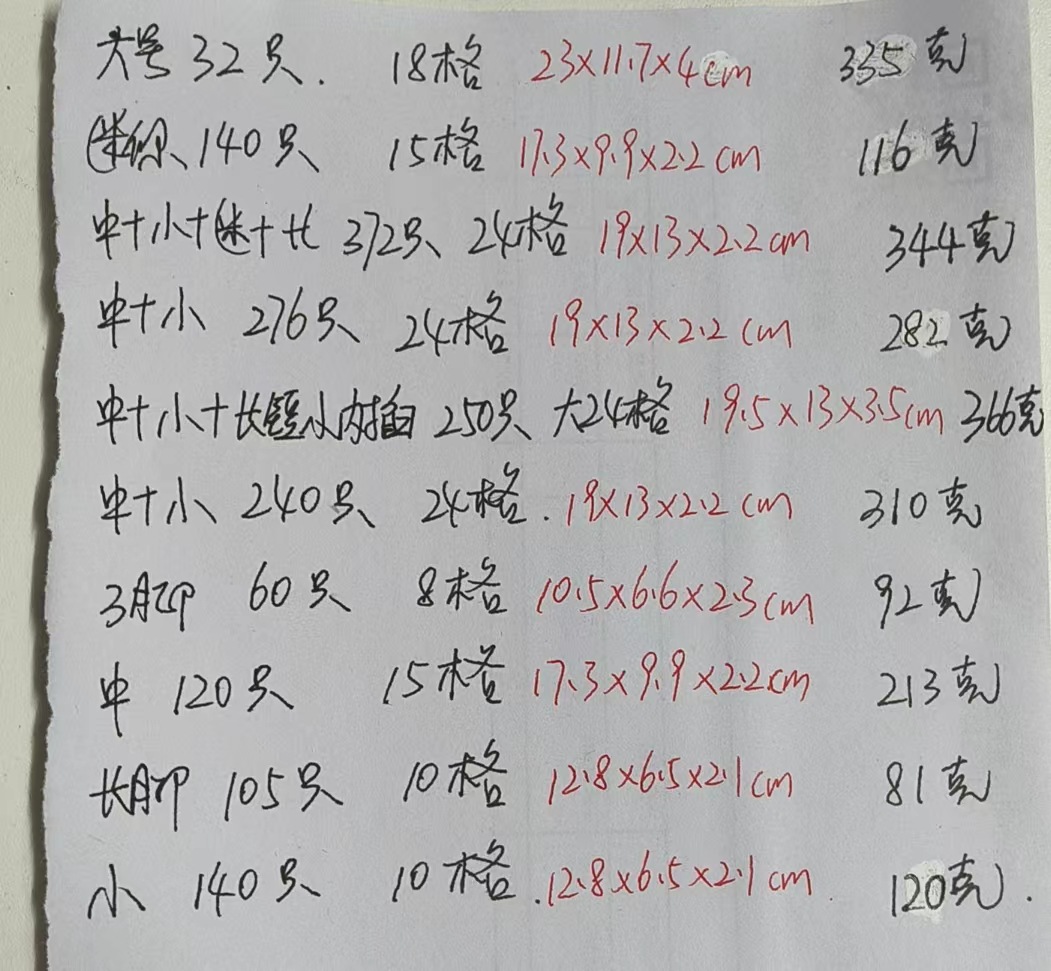 大号 32只. 18格 23×11.7×4cm 335克
迷你、140只、 15格 17.3×9.9×2.2cm 116克
中+小+迷+长 372只、24格 19×13×2.2cm 344克
中+小 276只、 24格 19×13×2.2cm 282克
中+小+长短小内插 250只、大24格 19.5×13×3.5cm 366克
中+小、240只、 24格. 19×13×2.2cm 310克
60只、 8格 10.5×6.6×2.3cm 92克
中 120只、 15格 17.3×9.9×2.2cm 213克
长脚 105只、 10格 12.8×6.5×2.1cm 81克
小、 140只、 10格. 12.8×6.5×2.1cm 120克.